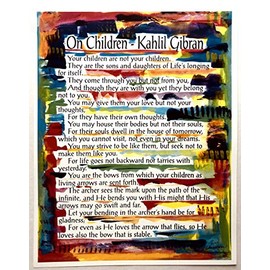 On Children - Kahlil Gibran
Your children are not your children.
They are the sons and daughters of Life's longing
for itself.
They come through you but not from you,
And though they are with you yet they belong
not to you.
You may give them your love but not your
thoughts,
For they have their own thoughts.
You may house their bodies but not their souls,
For their souls dwell in the house of tomorrow,
which you cannot visit, not even in your dreams.
You may strive to be like them, but seek not to
make them like you.
For life goes not backward nor tarries with
yesterday.
You are the bows from which your children as
living arrows are sent forth.
The archer sees the mark upon the path of the
infinite, and He bends you with His might that His
arrows may go swift and far.
Let your bending in the archer's hand be for
gladness.
For even as He loves the arrow that flies, so He
loves also the bow that is stable.